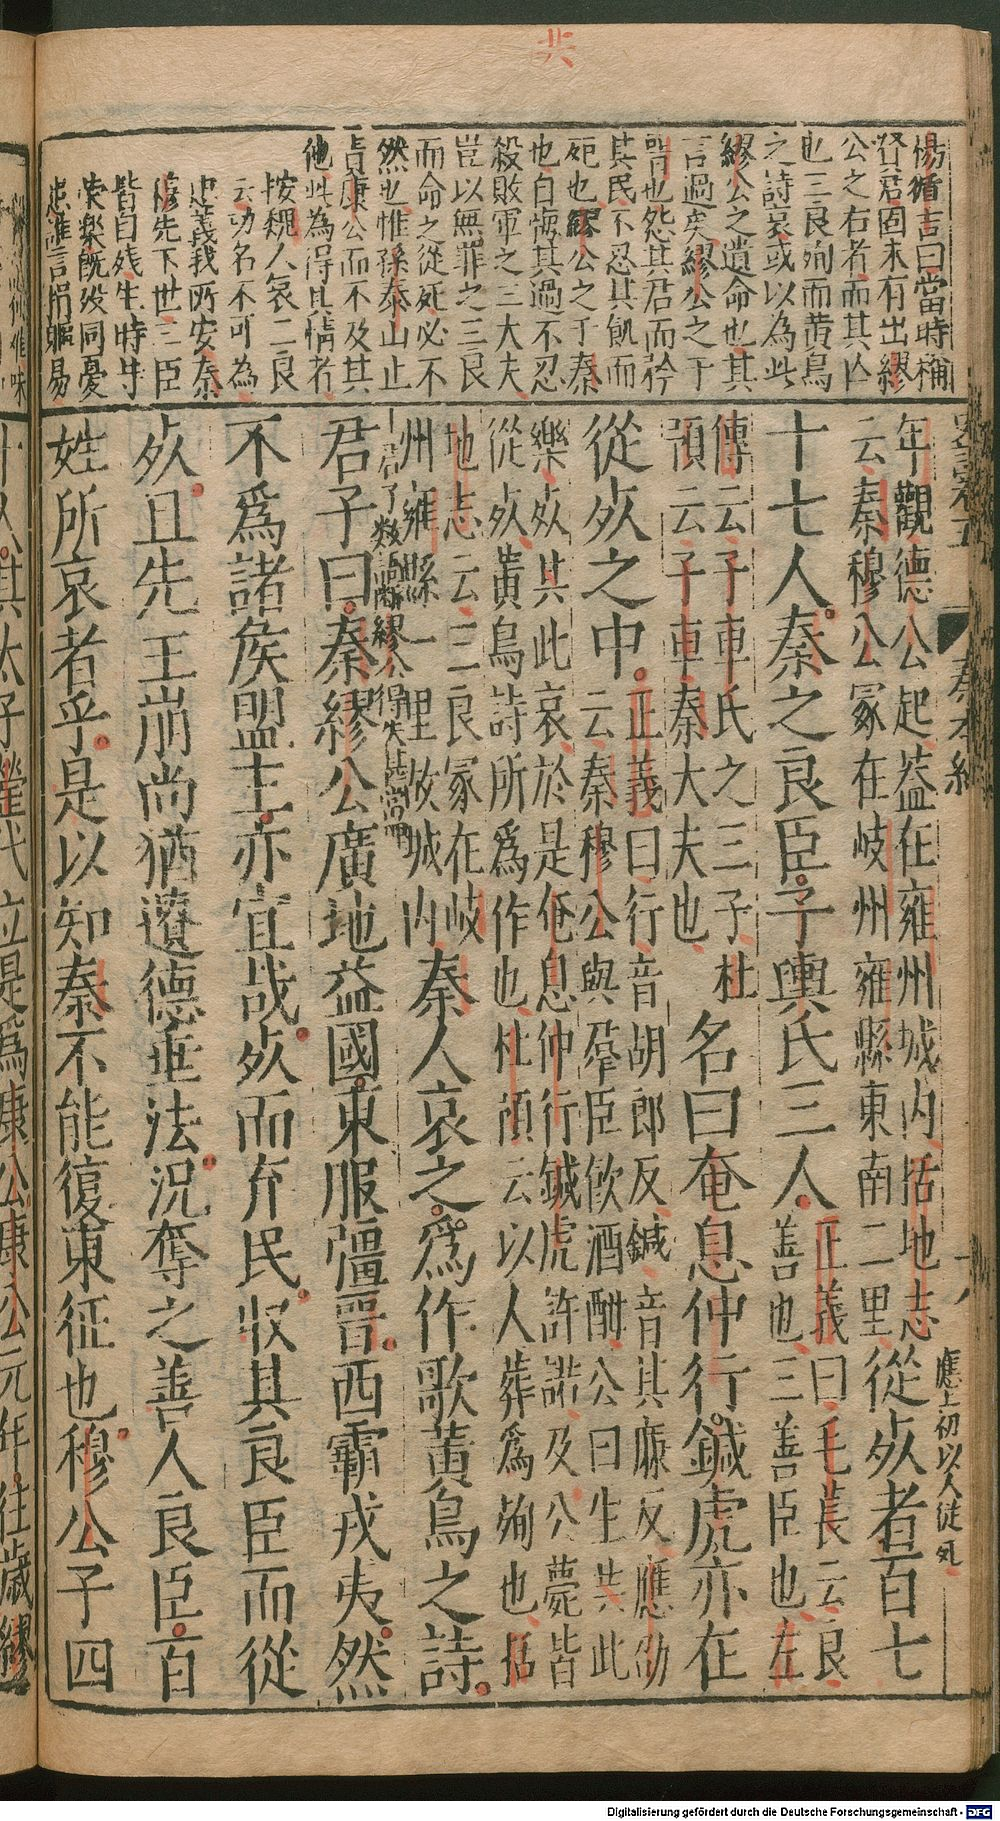 共
楊循吉曰當時稱
公之右者而其亾
也三良殉而黄鳥
之詩哀或以為此
繆公之遺命也其
言過矣繆公之于
其民不忍其飢而
死也繆公之于秦
也自悔其過不忍
殺敗軍之三大夫
豈以無罪之三良
而命之從死必不
然也惟孫泰山止
責康公而不及其
他此為得其情者
按魏人哀三良
云功名不可為
忠義我所安秦
穆先下世三臣
皆自残生時䒭
荣樂既没同憂
患誰言捐軀易
史記卷五
秦本紀
年觀德公起蓋在雍州城内括地志
云秦穆公冢在岐州雍縣東南二里
從死者百七
應上初以人從死
十七人秦之良臣子輿氏三人
正義曰毛萇云良
善也三善臣也左
傳云子車氏之三子杜
預云子車秦大夫也
名曰奄息仲行鍼虎亦在
從死之中
正義曰行音胡郎反鍼音其廉反應劭
云秦穆公與羣臣飲酒酣公曰生共此
樂死共此哀於是奄息仲行鍼虎許諾及公薨皆
從死黄鳥詩所爲作也杜預云以人葬爲殉也括
地志云三良冢在岐
州雍縣一里故城内
秦人哀之爲作歌黄鳥之詩
君子數語斷繆公得失甚當
君子曰秦繆公廣地益國東服彊晉西霸戎夷然
不爲諸侯盟主亦宜哉死而弃民收其良臣而從
死且先王崩尚猶遺德垂法況奪之善人良臣百
姓所哀者乎是以知秦不能復東征也穆公子四
十人其太子罃代立是爲康公康公元年往歲繆
Digitalisierung gefördert durch die Deutsche Forschungsgemeinschaft - DFG